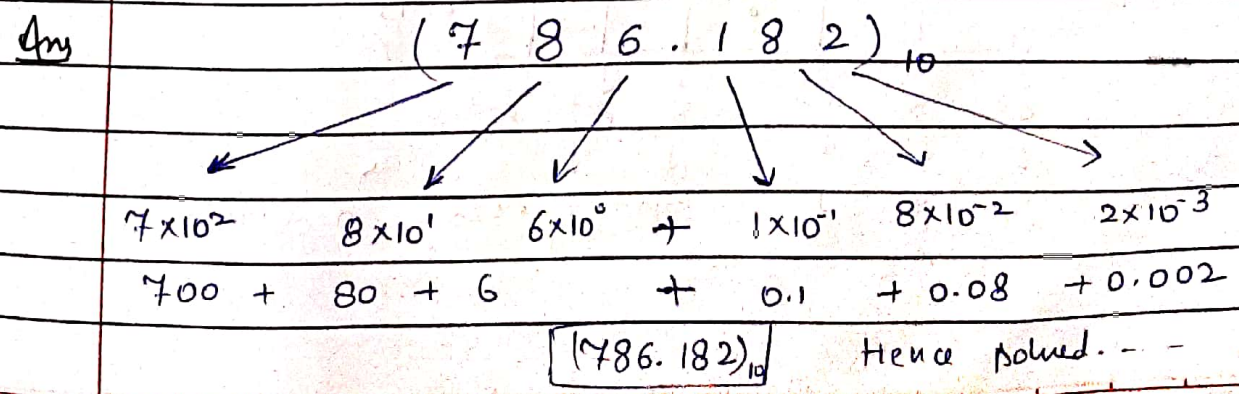 Ans (7 8 6 . 1 8 2)₁₀
7×10² 8×10¹ 6×10⁰ + 1×10⁻¹ 8×10⁻² 2×10⁻³
700 + 80 + 6 + 0.1 + 0.08 + 0.002
(786.182)₁₀ Hence solved. - -